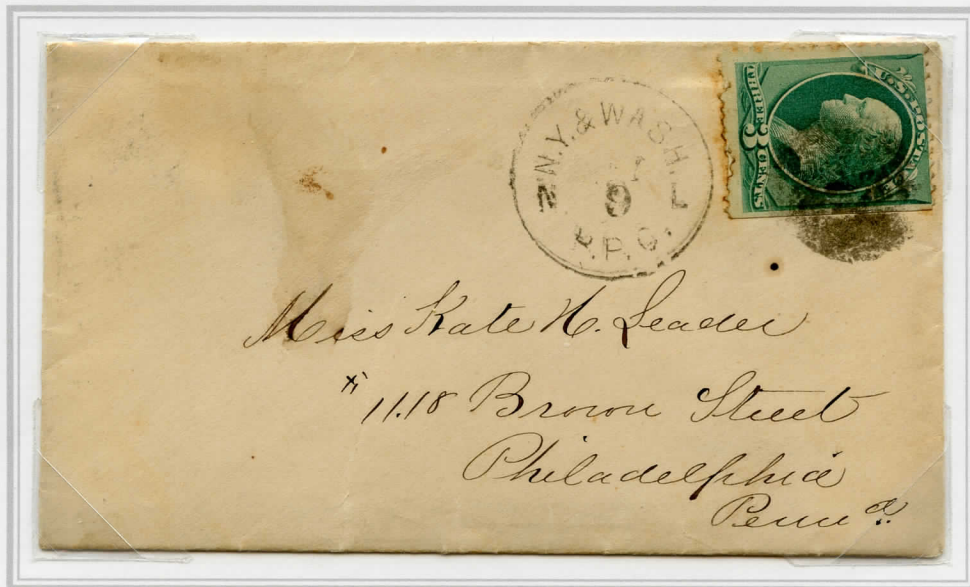 N.Y. & WASH.
9
R.P.O.
U.S. POSTAGE
THREE 3 CENTS
Miss Kate H. Leader
1118 Brown Street
Philadelphia
Penna